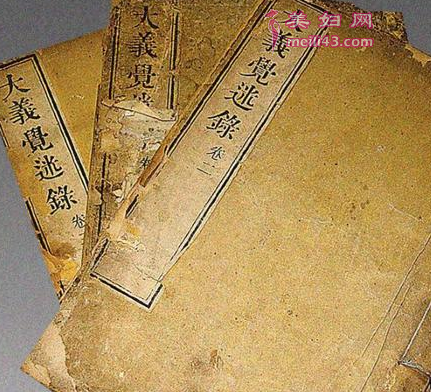 美妇网
meifu43.com
大義覺迷錄 卷
大義覺迷 卷
義覺迷錄 卷二